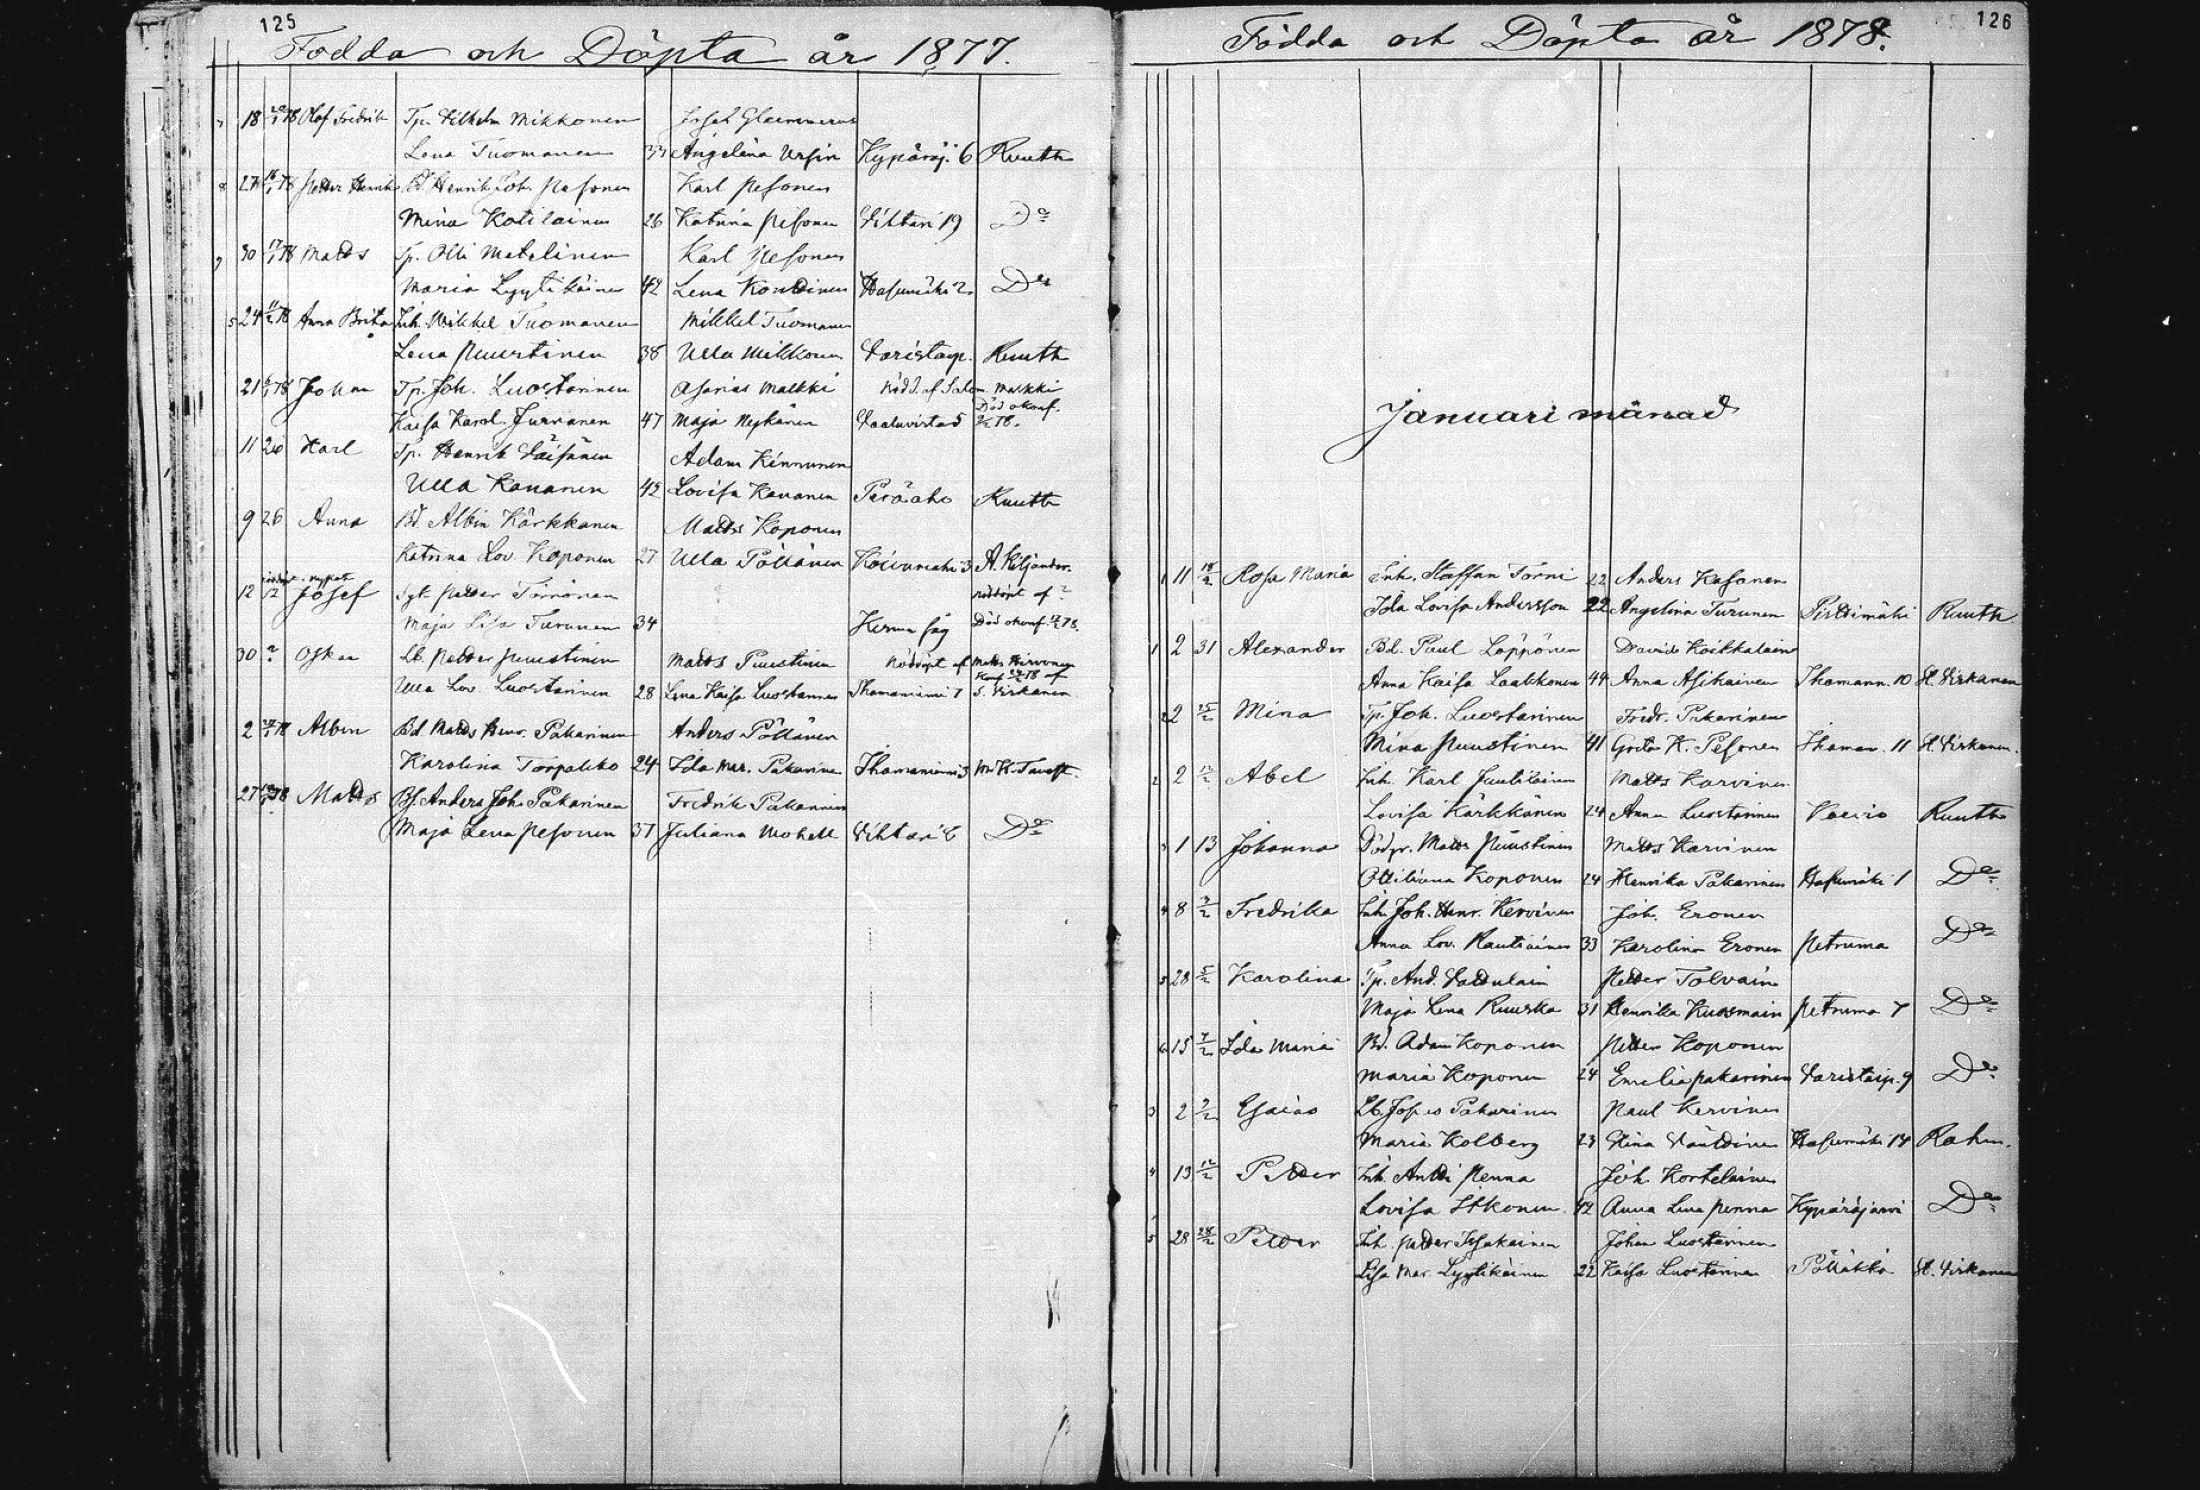 125
Födda och Döpta år 1877.
18 Olof Fredrik Tp. Vilhelm Mikkonen
Lena Tuomanen Angelina Ursin Kypäräj. 6 Ruuth
27 Petter Henrik Bd. Henrik Joh. Pesonen Karl Pesonen
Mina Kotilainen 26 Katrina Pesonen Vihtari 19 Do
30 17/1 78 Matts Tp. Olli Matilainen Karl Pesonen
Maria Lyytikäinen 42 Lena Kontinen Hasumäki 2 Do
24 Anna Brita Inh. Mikkel Tuomanen Mikkel Tuomanen
Lena Puustinen 38 Ulla Mikkonen Varistaip. Ruuth
21 Johan Tp. Joh. Luostarinen Asarias Malkki Nödd. af Salom. Malkki
Kaisa Karol. Jurvanen 47 Maja Nykänen 5 Död okonf.
11 26 Karl Tp. Henrik Väisänen Adam Kinnunen
Ulla Kananen 42 Lovisa Kananen Peräaho Ruuth
9 26 Anna Bd. Albin Kärkkänen Matts Koponen
Katrina Lov. Koponen 27 Ulla Pöllänen 3 A. Kiljander.
12 12 Josef Petter Törrönen nöddöpt af ?
Maja Lisa Turunen 34 Kerma såg Död okonf.
30 ? Oskar Lb. Petter Puustinen Matts Puustinen Nöddöpt af Matts Hirvonen
Ulla Lov. Luostarinen 28 Lena Kaisa Luostarinen Ihamaniemi 7 S. Virkanen
2 Albin Bd Matts Henr. Pakarinen Anders Pöllänen
Karolina Torpakko 24 Ida Mar. Pakarinen Ihamaniemi 3
27 Matts Anders Joh. Pakarinen Fredrik Pakarinen
Maja Lena Pesonen 37 Juliana Mohell Vihtari 6 Do
126
Födda och Döpta år 1878.
Januari månad
1 11 18/2 Rosa Maria Inh. Staffan Torni 22 Anders Kasanen
Ida Lovisa Andersson 22 Angelina Turunen Pirttimäki Ruuth
1 2 31 Alexander Bd. Paul Löppönen David Koikkalain
Anna Kaisa Laakkonen 44 Anna Asikainen Ihamann. 10 H. Virkanen
2 2 25/2 Mina Tp. Joh. Luostarinen Fredr. Pakarinen
Mina Puustinen 41 Greta K. Pesonen Ihaman. 11 H. Virkanen.
2 2 12/2 Abel Inh. Karl Juutilainen Matts Karvinen
Lovisa Kärkkänen 24 Anna Luostarinen Ruuth
3 1 13 Johanna Matts Puustinen Matts Karvinen
Ottiliana Koponen 24 Henrika Pakarinen Hasumäki 1 Do
4 8 3/2 Fredrika Inh. Joh. Henr. Kervinen Joh. Eronen
Anna Lov. Rautiainen 33 Karolina Eronen Petruma Do
5 28 5/2 Karolina Tp. And. Vattulain Petter Tolvain
Maja Lena Ruuska 31 Henrika Kuosmain Petruma 7 Do
6 15 7/2 Ida Maria Bd. Adam Koponen Petter Koponen
Maria Koponen 24 Emelia Pakarinen Varistaip. 9 Do
3 2 9/2 Esaias Lb. Pakarinen Paul Kervinen
Maria Kolberg 23 Stina Väntdinen Hasumäki 14 Rahm.
4 13 12/2 Petter Inh. Antti Penna Joh. Kortelainen
Lovisa Itkonen 42 Anna Lena Penna Kypäräjärvi Do
5 28 28/2 Petter Inh. Petter Issakainen Johan Luostarinen
Lisa Mar. Lyytikäinen 22 Kaisa Luostarinen Pölläkkä H. Virkanen